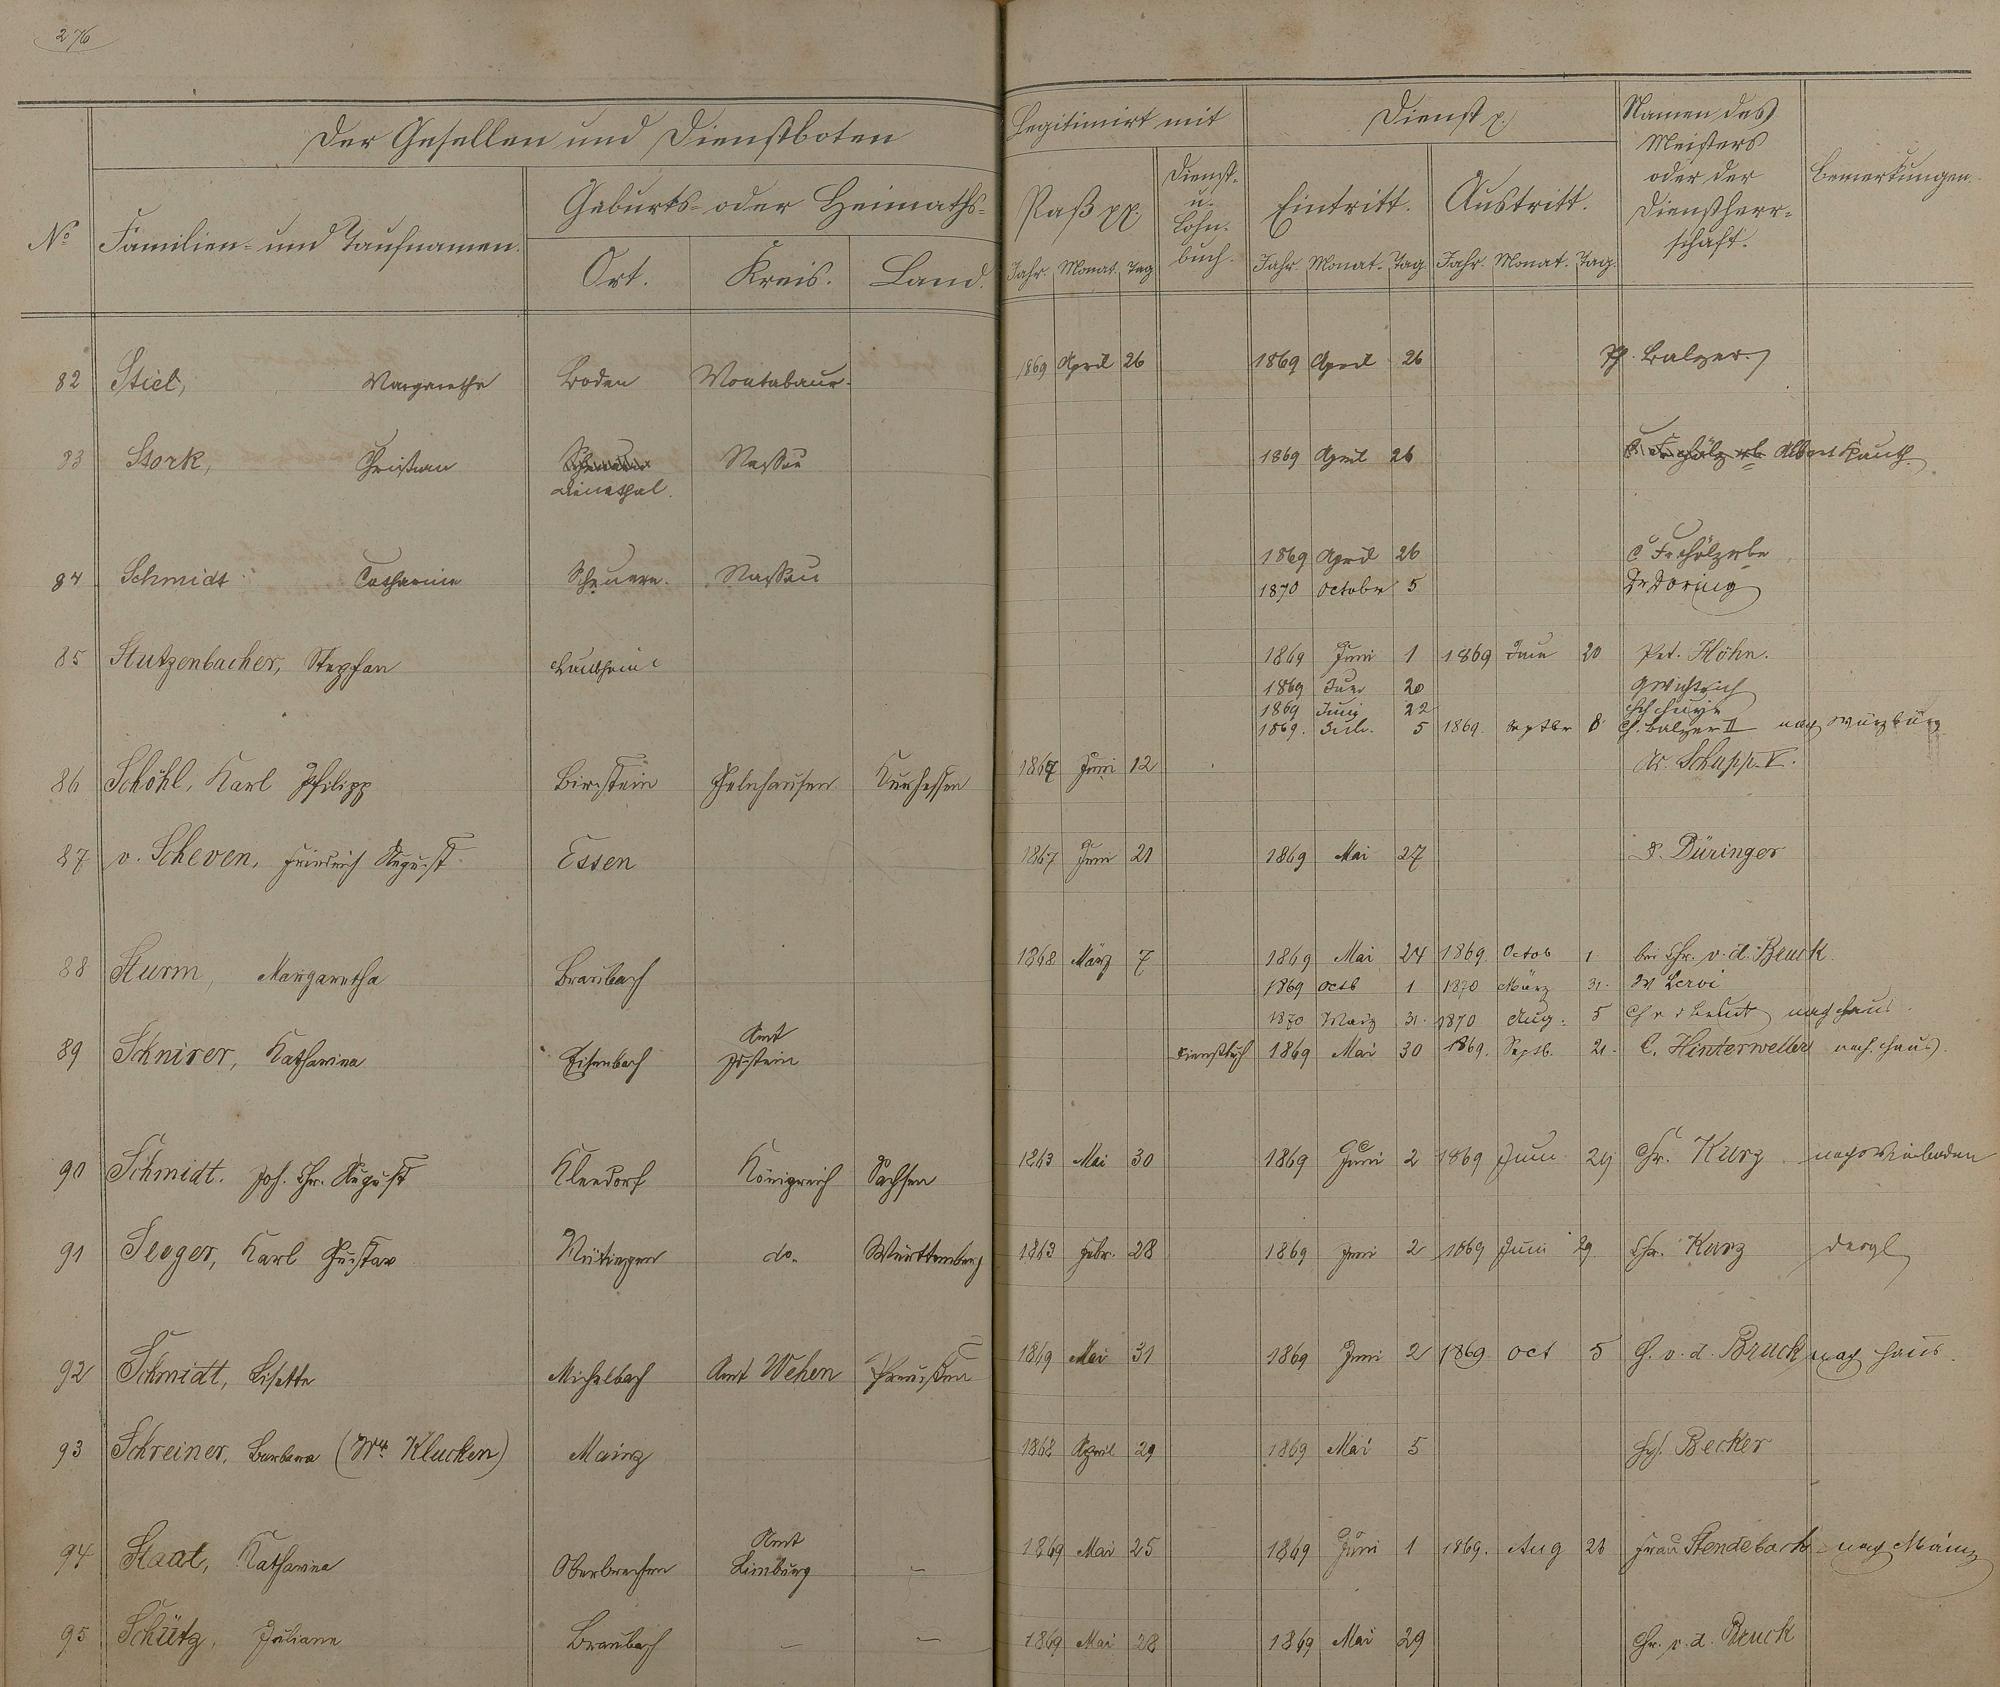 276
Der Gesellen und Dienstboten
Legitimirt mit
Dienst p.
Namen des
Meisters
oder der
Dienstherr-
schaft.
Bemerkungen.
No
Familien- und Taufnamen.
Geburts- oder Heimaths-
Ort. Kreis. Land.
Paß pp.
Dienst-
u.
Lohn-
buch.
Eintritt. Austritt.
Jahr. Monat. Tag Jahr. Monat. Tag Jahr. Monat. Tag.
82 Stiel, Margarethe Boden Montabaur. 1869 April 26 1869 April 26 Ph. Balzer
83 Stork, Christian Nassau 1869 April 26 Albert Kauth.
Dienethal.
1869 April 26
84 Schmidt Catharine Scheuern. Nassau 1870 October 5 Dr Döring
85 Stutzenbacher, Stephan 1869 Juni 1 1869 Juni 20 Pet. Höhn.
1869 Juni 20
1869 Juni 22
1869. Juli. 5 1869. Septbr 8 Ch. Balzer II nach Würzburg
86 Schöhl, Karl Philipp Birstein Gelnhausen Kurhessen 1867 Juni 12 Schupp V.
87 v. Scheven, Friedrich August Essen 1867 Juni 21 1869 Mai 27 Düringer
88 Sturm, Margaretha Braubach 1868 März 7 1869 Mai 24 1869. Octob 1. bei Chr. v. d. Bruck.
1869 Octb 1 1870 März 31.
1870 März 31. 1870 Aug. 5 nach Haus.
89 Schnirer, Katharina Eisenbach Amt Idstein Dienstbuch 1869 Mai 30 1869. Septb. 21. C. Hinterweller nach Haus.
90 Schmidt. Joh. Chr. August Königreich Sachsen 1863 Mai 30 1869 Juni 2 1869 Juni 29 Chr. Kurz nach Wiesbaden
91 Seeger, Karl Gustav do. Württemberg 1863 Febr. 28 1869 Juni 2 1869 Juni 29 Chr. Kurz desgl
92 Schmidt, Lisette Michelbach Amt Wehen Preußen 1869 Mai 31 1869 Juni 2 1869 Oct 5 Ch. v. d. Bruck nach Haus.
93 Schreiner, Barbara (Wwe Klucken) Mainz 1868 April 29 1869 Mai 5 Becker
94 Staat, Katharina Oberbrechen Amt Limburg - 1869 Mai 25 1869 Juni 1 1869. Aug 28 Frau Stendebach nach Mainz
95 Schütz, Juliane Braubach - - 1869 Mai 28 1869 Mai 29 Chr. v. d. Bruck